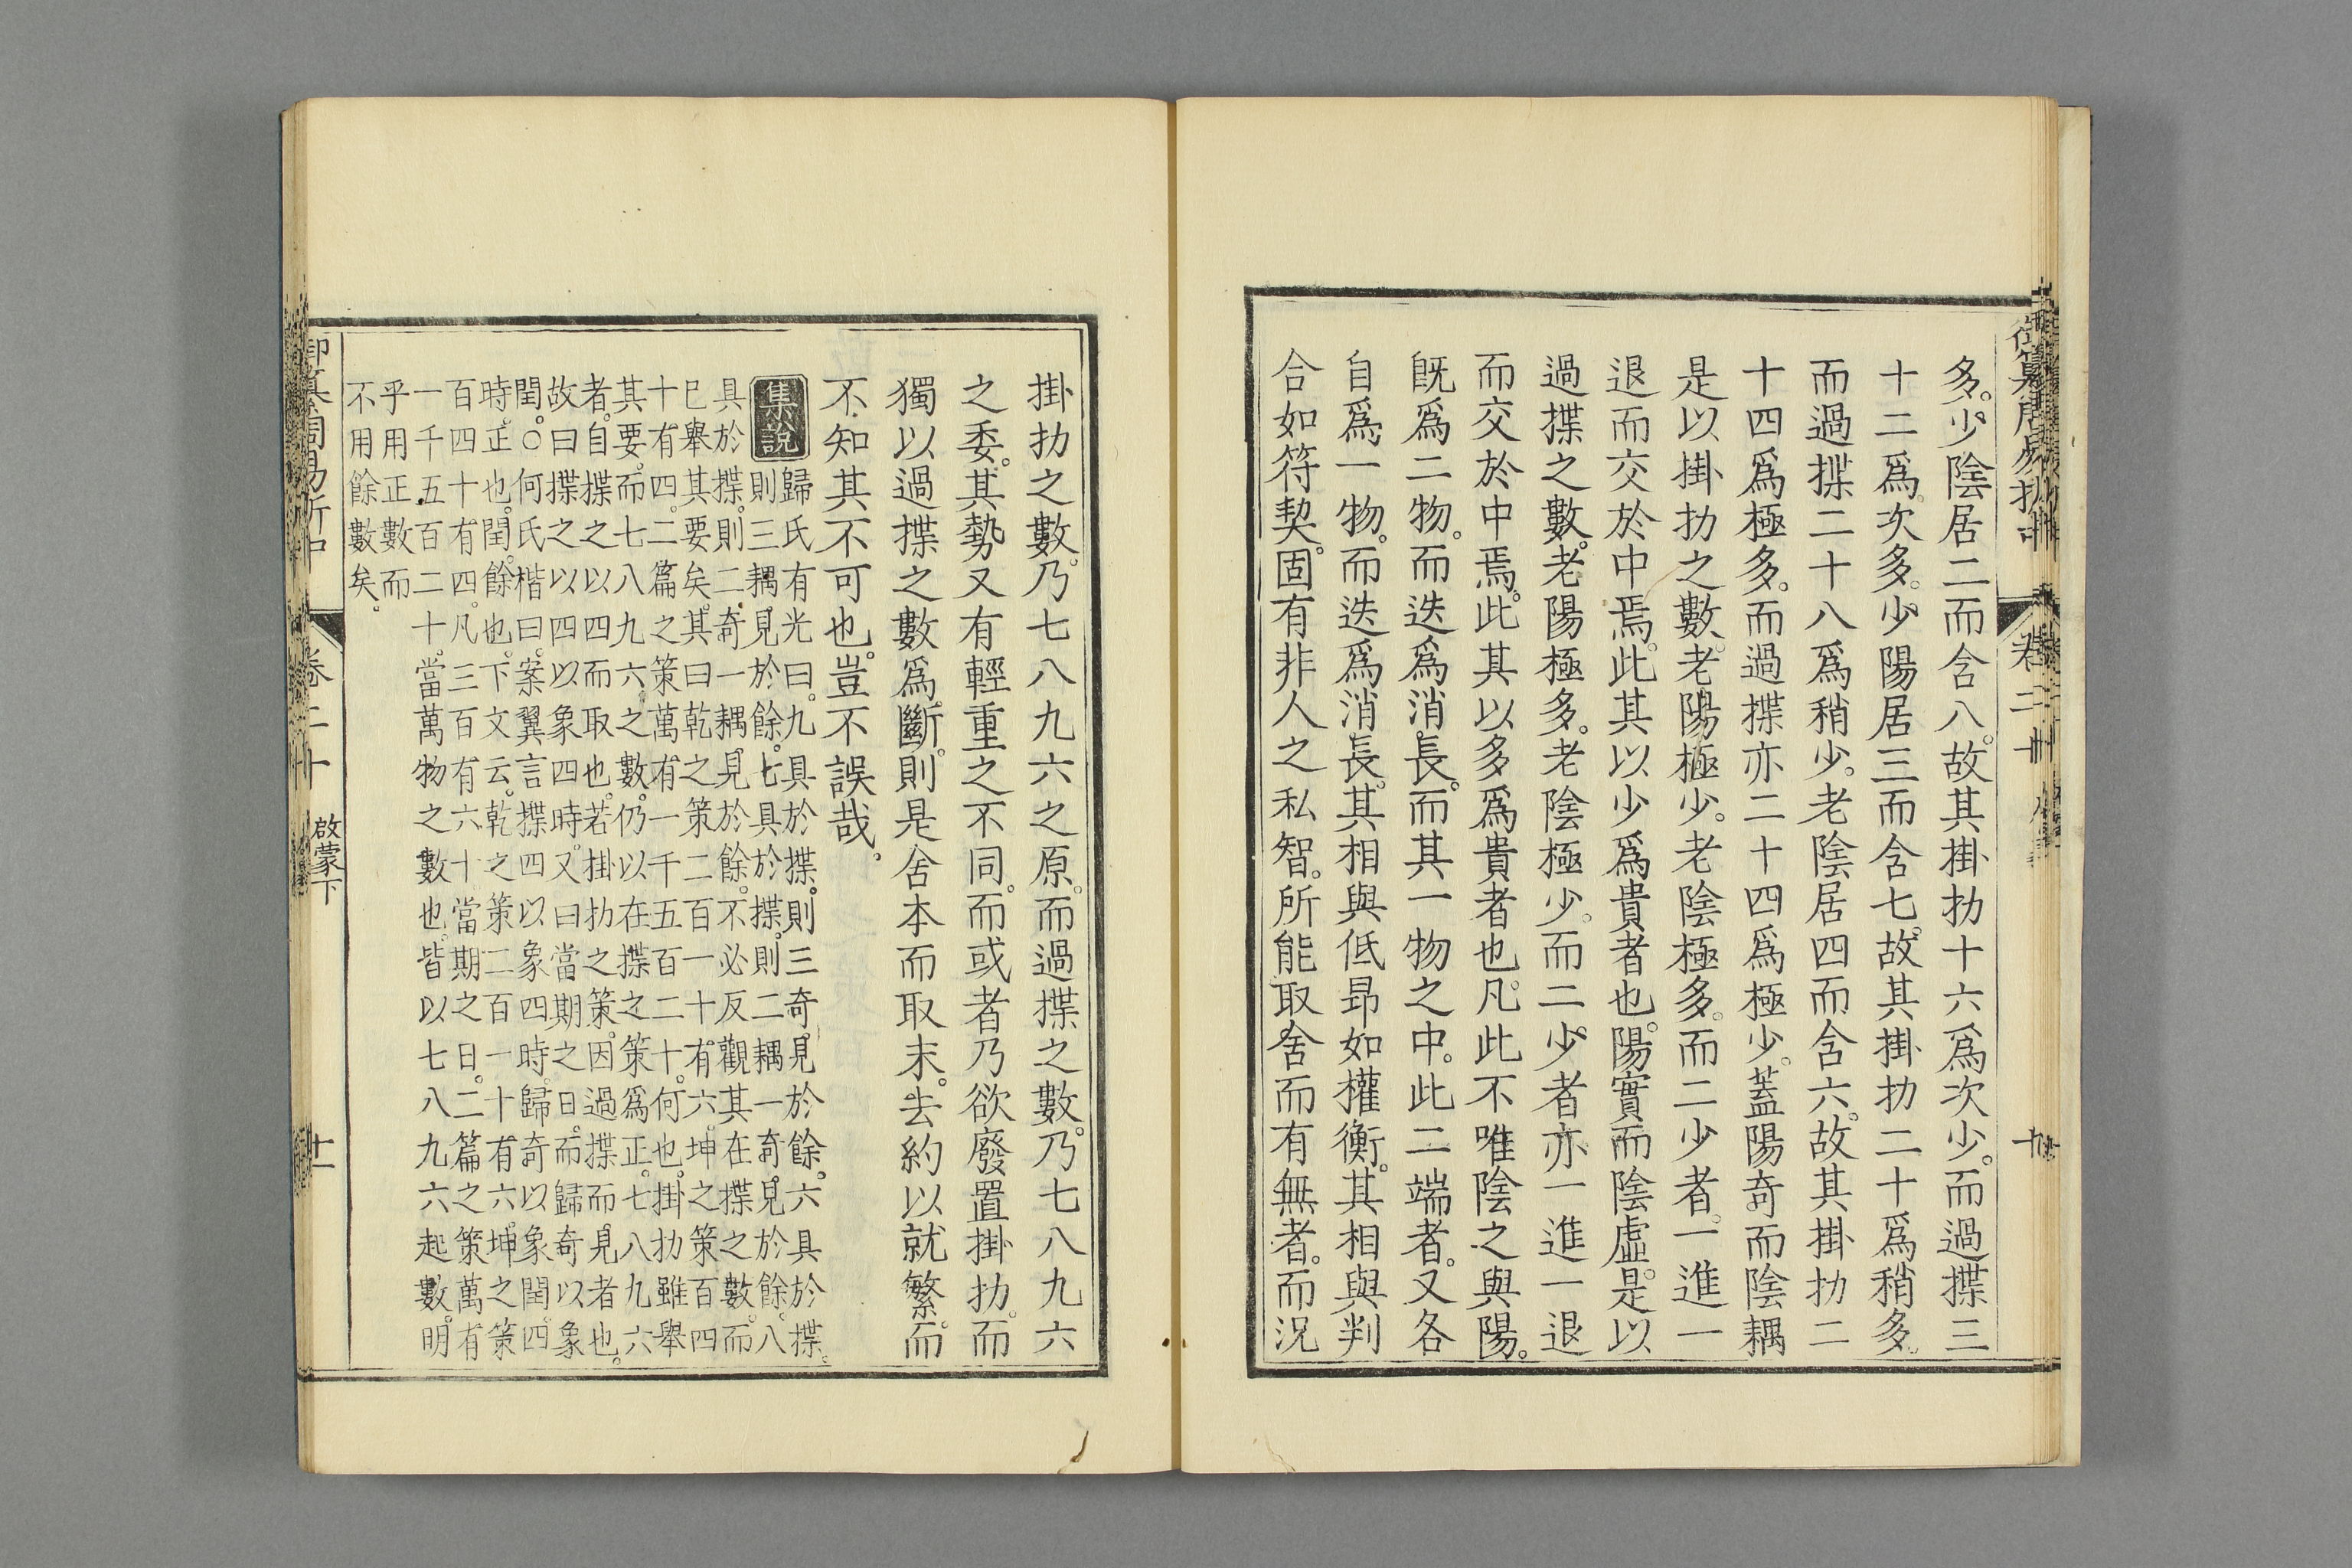 多。少陰居二而含八。故其掛扐十六爲次少。而過揲三
十二爲次多。少陽居三而含七。故其掛扐二十爲稍多。
而過揲二十八爲稍少。老陰居四而含六。故其掛扐二
十四爲極多。而過揲亦二十四爲極少。蓋陽奇而陰耦
是以掛扐之數。老陽極少。老陰極多。而二少者。一進一
退而交於中焉。此其以少爲貴者也。陽實而陰虛。是以
過揲之數。老陽極多。老陰極少。而二少者亦一進一退
而交於中焉。此其以多爲貴者也。凡此不唯陰之與陽。
既爲二物。而迭爲消長。而其一物之中。此二端者。又各
自爲一物。而迭爲消長。其相與低昂如權衡。其相與判
合如符契。固有非人之私智。所能取舍而有無者。而況
掛扐之數。乃七八九六之原。而過揲之數。乃七八九六
之委。其勢又有輕重之不同。而或者乃欲廢置掛扐。而
獨以過揲之數爲斷。則是舍本而取末。去約以就繁。而
不知其不可也。豈不誤哉。
集說 歸氏有光曰。九具於揲。則三奇。見於餘。六具於揲。
則三耦見於餘。七具於揲。則二耦一奇。見於餘。八
具於揲。則二奇一耦。見於餘。不必反觀其在揲之數。而
已舉其要矣。其曰乾之策二百一十有六。坤之策百四
十有四。二篇之策萬有一千五百二十。何也。掛扐雖舉
其要。而七八九六之數。仍以在揲之策爲正。七八九六
者。自揲之以四而取也。若掛扐之策。因過揲而見者也。
故曰揲之以四以象四時。又曰當期之日。而歸奇以象
閏。○何氏楷曰。案翼言揲四以象四時。歸奇以象閏。四
時。正也。閏。餘也。下文云。乾之策二百一十有六。坤之策
百四十有四。凡三百有六十。當期之日。二篇之策萬有
一千五百二十。當萬物之數也。皆以七八九六起數。明
乎用正數而
不用餘數矣。
卷二十 啟蒙下 十一